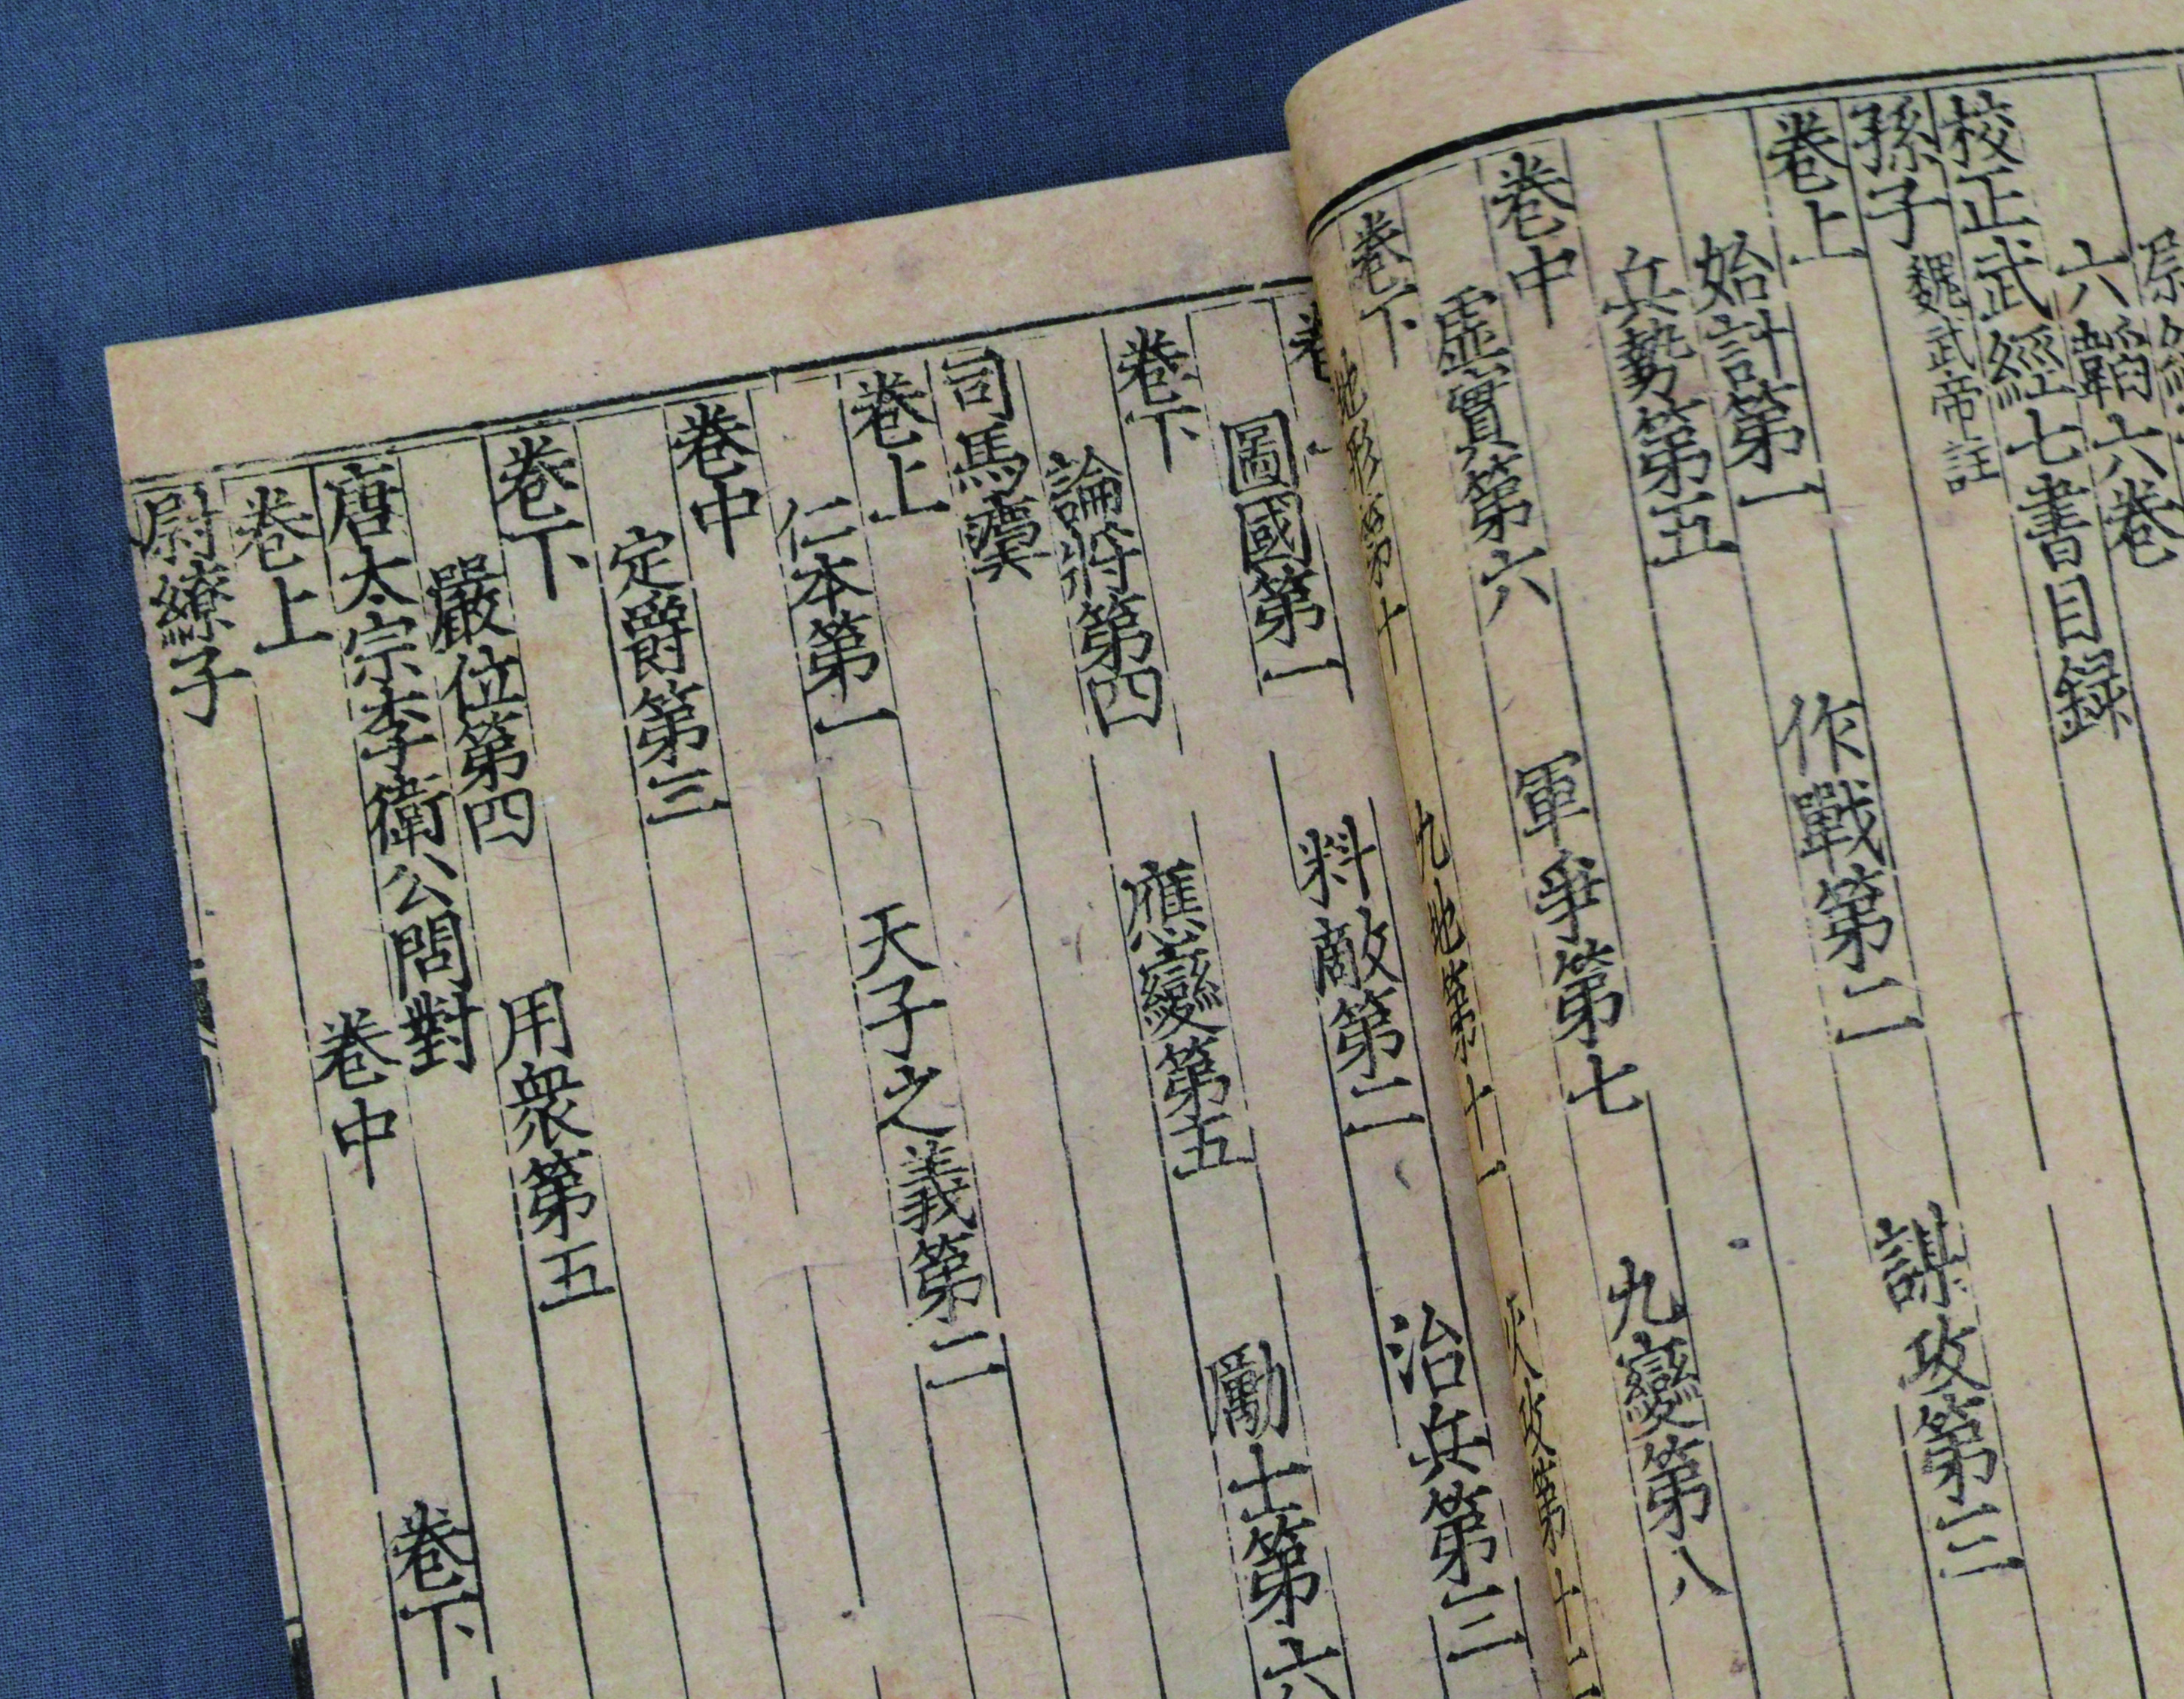 六韜六卷
校正武經七書目録
孫子 魏武帝註
卷上
始計第一 作戰第二 謀攻第三
兵勢第五
卷中
虛實第六 軍爭第七 九變第八
卷下
地形第十 九地第十一 火攻第十二
圖國第一 料敵第二 治兵第三
卷下
論將第四 應變第五 勵士第六
司馬
卷上
仁本第一 天子之義第二
卷中
定爵第三
卷下
嚴位第四 用衆第五
唐太宗李衛公問對
卷上 卷中 卷下
尉繚子